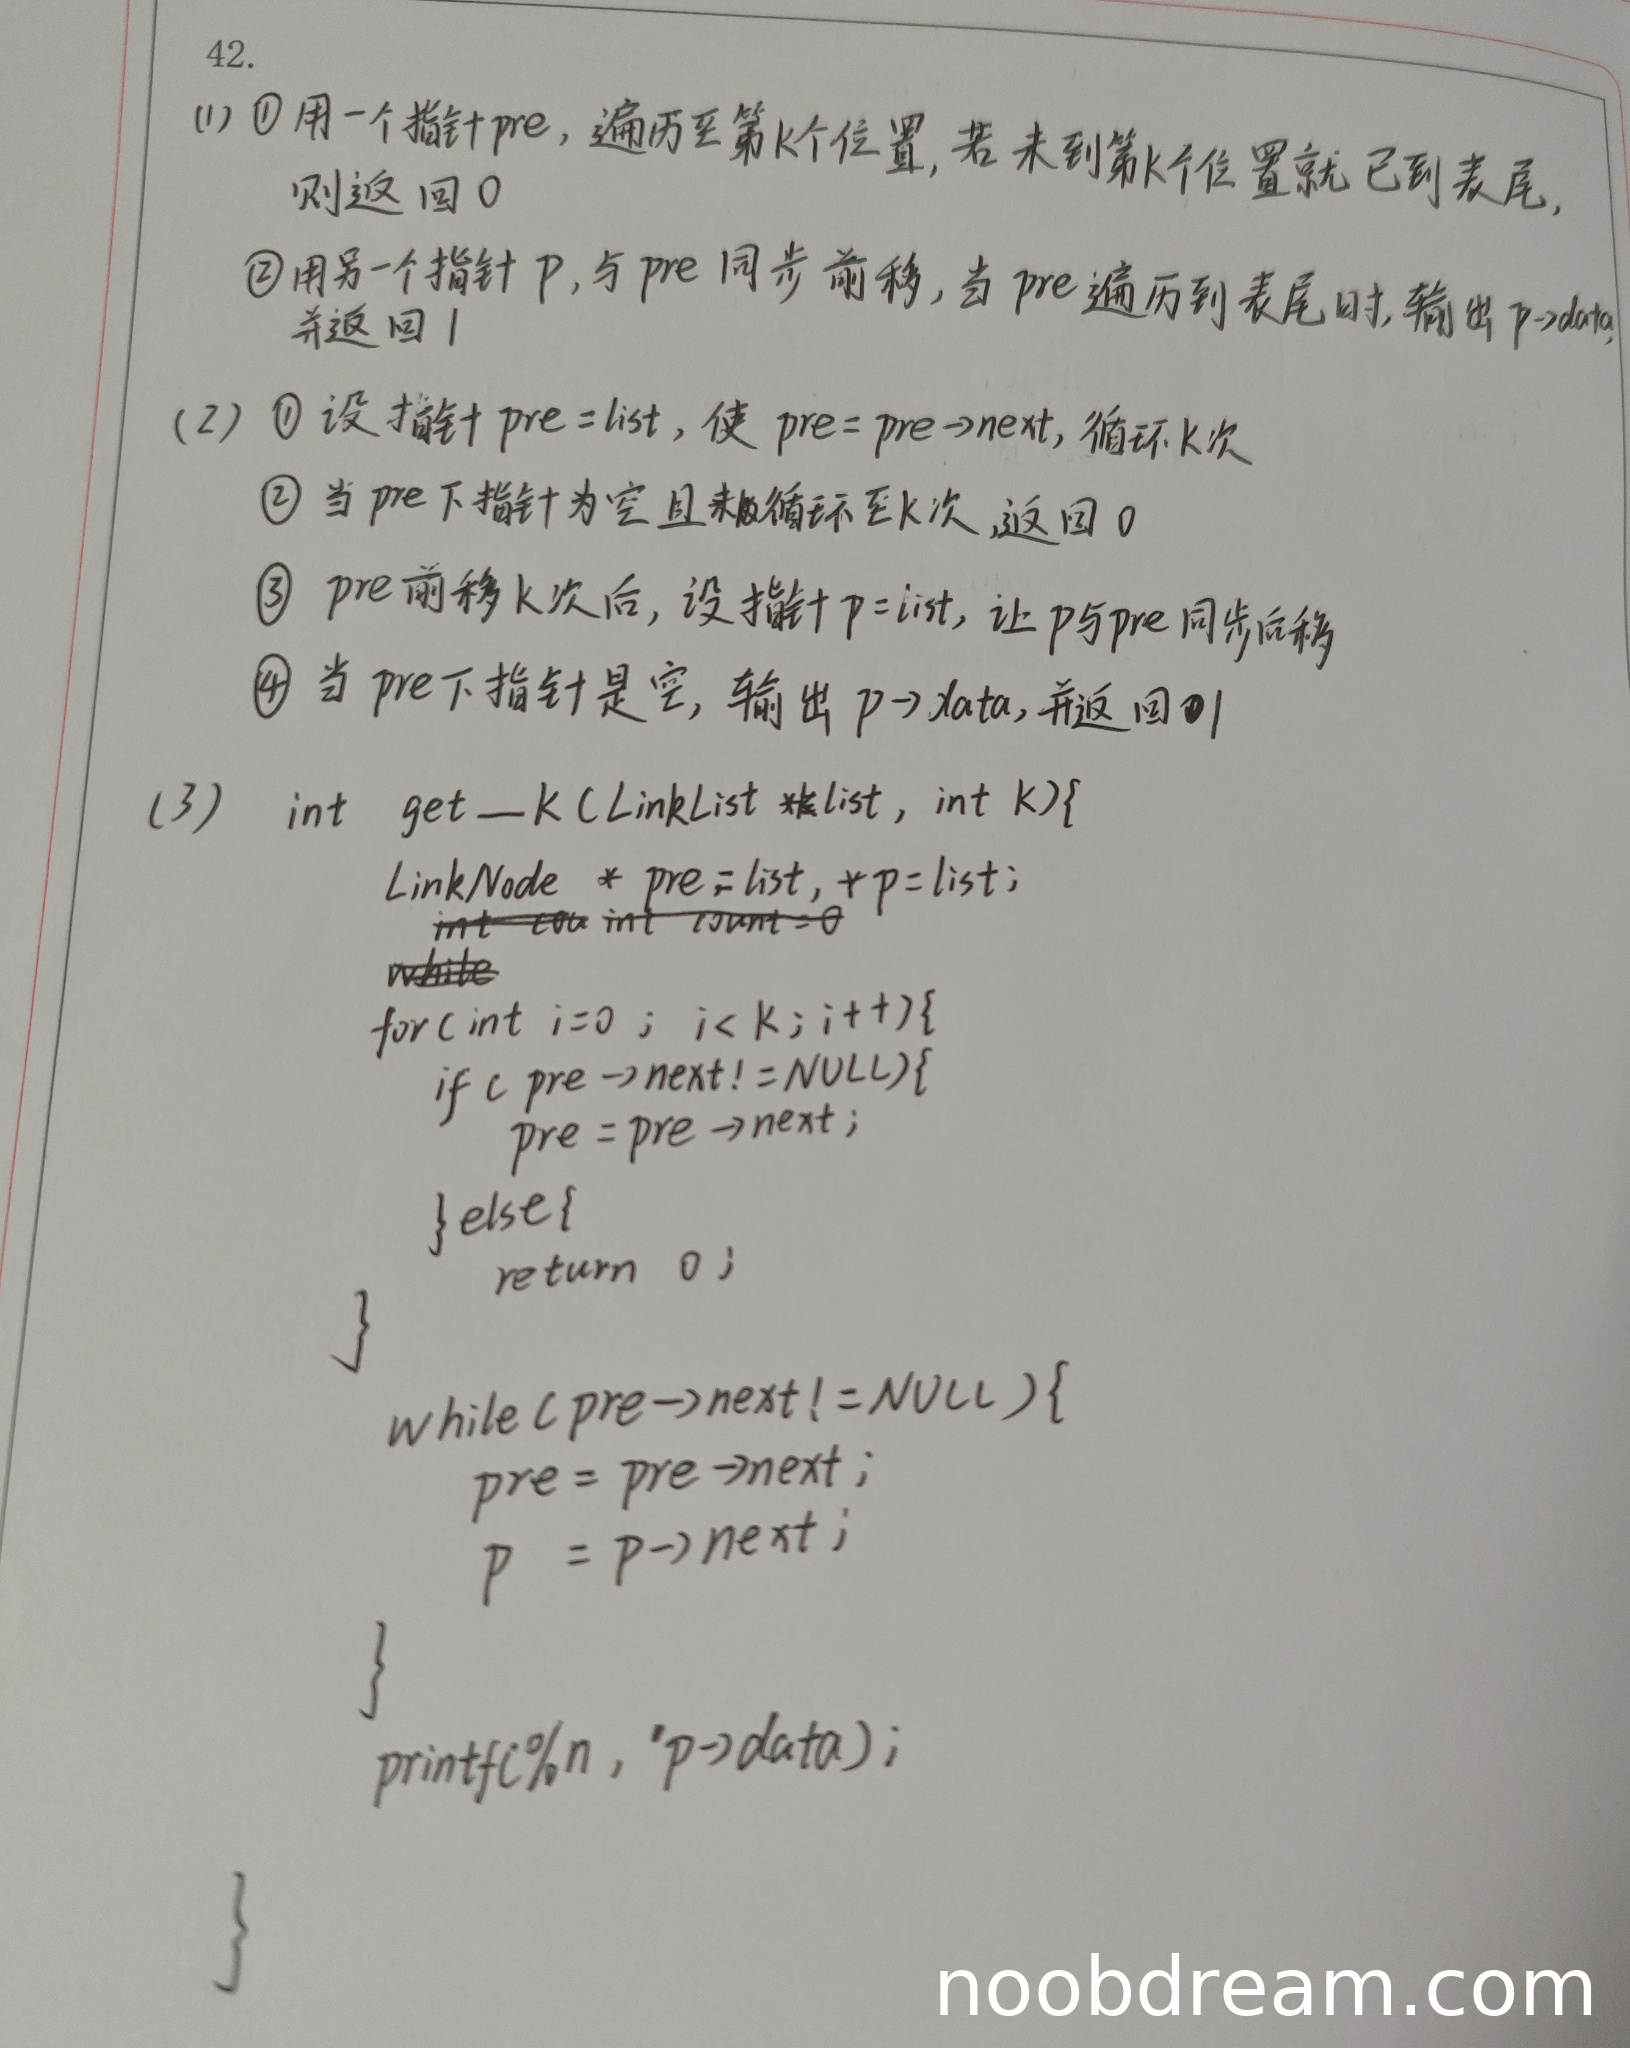 42.
(1) ① 用一个指针pre，遍历至第k个位置，若未到第k个位置就已到表尾，
则返回0
② 用另一个指针p，与pre同步前移，当pre遍历到表尾时，输出p->data，
并返回1
(2) ① 设指针pre=list，使pre=pre->next，循环k次
② 当pre下指针为空且未循环至k次，返回0
③ pre前移k次后，设指针p=list，让p与pre同步后移
④ 当pre下指针是空，输出p->data，并返回1
(3) int get_k(LinkList list, int k){
LinkNode * pre=list, *p=list;
int cou int count=0
while
for(int i=0; i<k; i++){
if(pre->next!=NULL){
pre=pre->next;
}else{
return 0;
}
while(pre->next!=NULL){
pre=pre->next;
p =p->next;
}
printf(%n, "p->data);
}
noobdream.com